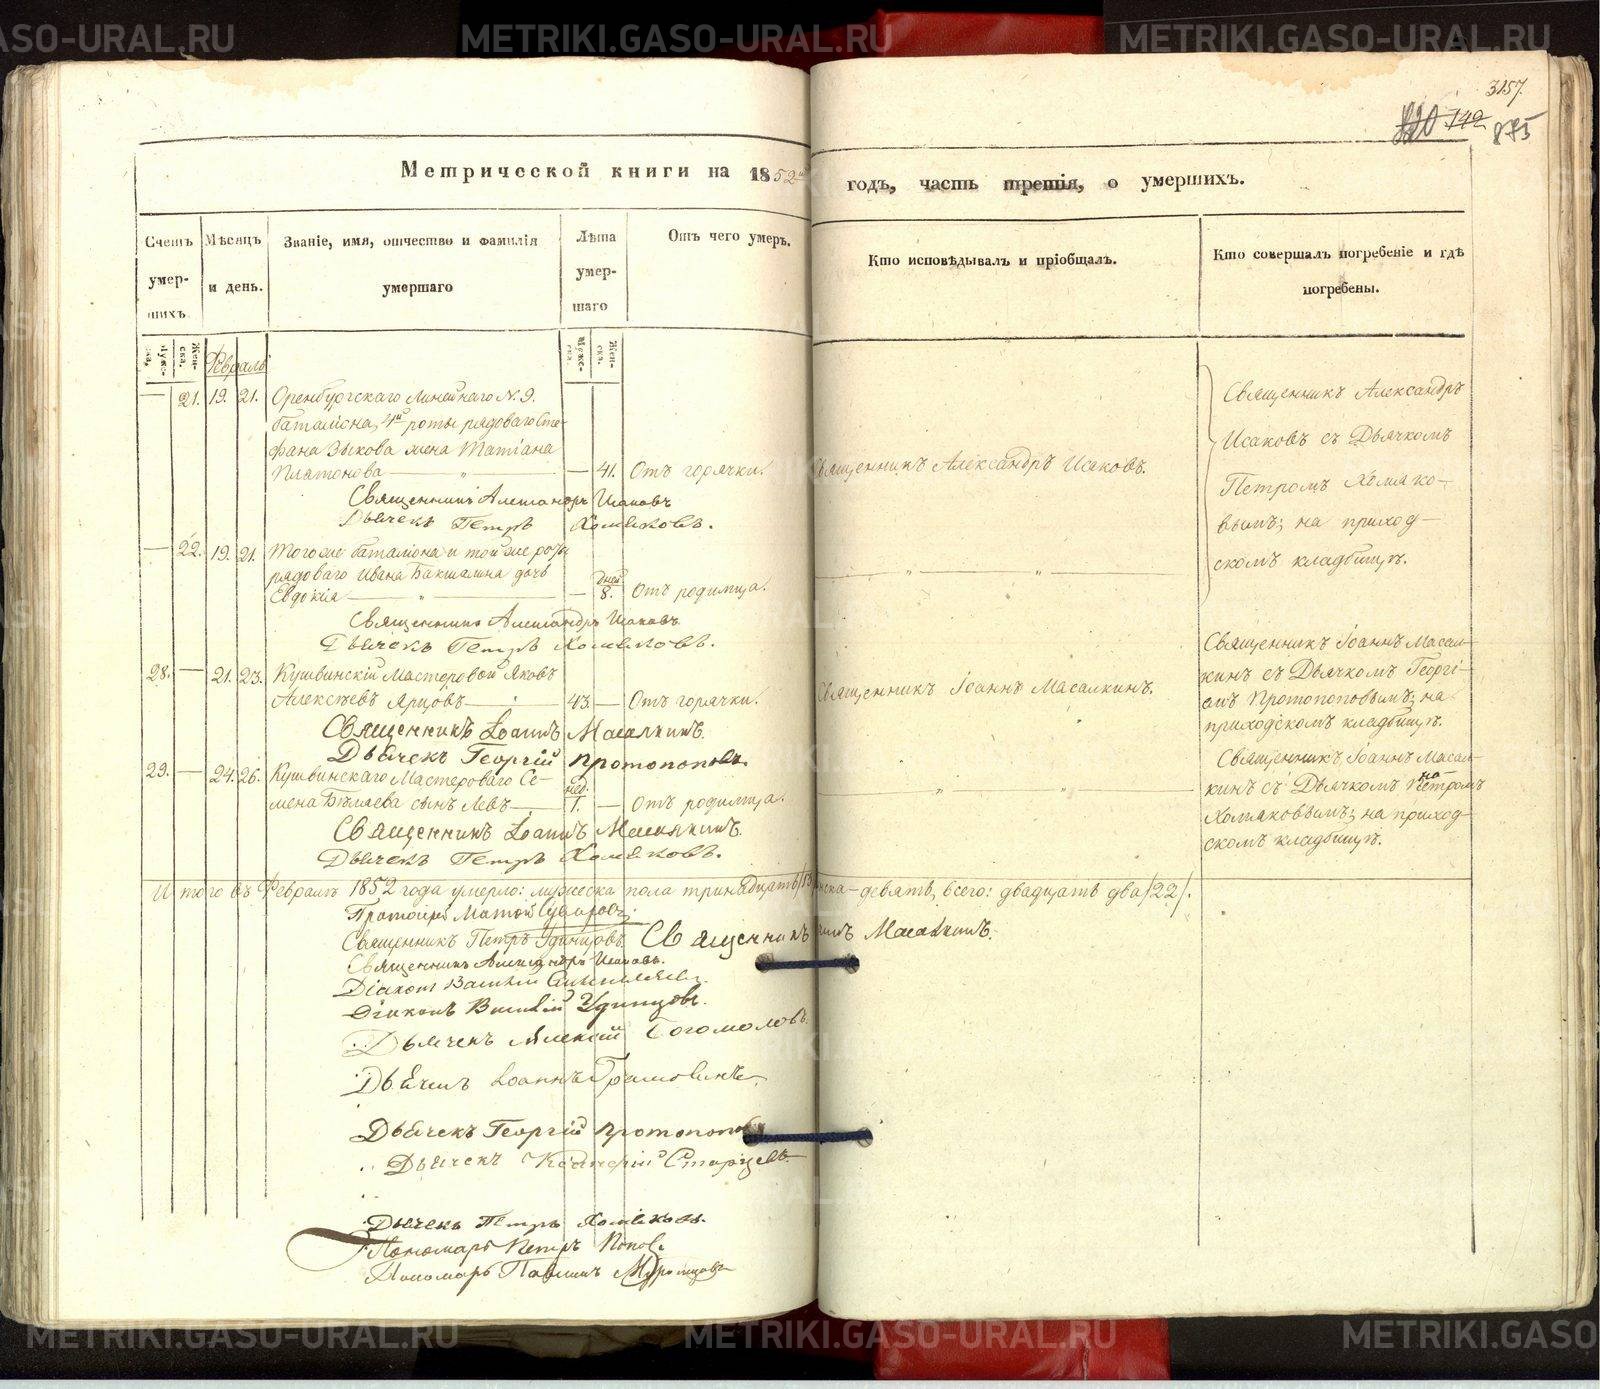 METRIKI.GASO-URAL.RU
METRIKI.GASO-URAL.RU
3157.
142
875
Метрической книги на 1852й
годъ, часть третія, о умершихъ.
Счетъ умер-шихъ.
Муже-ска.
Жен-ска.
Мѣсяцъ и день.
Званіе, имя, отчество и фамилія умершаго
Лѣта умер-шаго
Муже-ска.
Жен-ска.
Отъ чего умеръ.
Кто исповѣдывалъ и пріобщалъ.
Кто совершалъ погребеніе и гдѣ погребены.
Февраль
21. 19. 21. Оренбургскаго Линейнаго N. 9.
баталіона, 4й роты рядоваго Сте-
фана Зыкова жена Татіана
Платонова — 41. Отъ горячки.
Священникъ Александръ Исаковъ.
Священникъ Александръ
Исаковъ съ Дьячкомъ
Петромъ Хомяко-
вымъ; на приход-
скомъ кладбищѣ.
Священникъ Александръ Исаковъ
Дьячекъ Петръ Хомяковъ.
22. 19. 21. Того же баталіона и той же роты
рядоваго Ивана Бакшалина дочь
Евдокія — дней 8. Отъ родимца.
Священникъ Александръ Исаковъ
Дьячекъ Петръ Хомяковъ.
28. — 21. 23. Кушвинскій Мастеровой Яковъ
Алексѣевъ Ярцовъ — 43 — Отъ горячки.
Священникъ Іоаннъ Масалкинъ.
Священникъ Іоаннъ Масал-
кинъ съ Дьячкомъ Георгі-
емъ Протопоповымъ; на
приходскомъ кладбищѣ.
Священникъ Іоаннъ Масалкинъ.
Дьячекъ Георгій Протопоповъ
29. — 24. 26. Кушвинскаго Мастероваго Се-
мена Бѣляева сынъ Левъ — нед. 1. — Отъ родимца.
Священникъ Іоаннъ Масал-
кинъ съ Дьячкомъ Петромъ
Хомяковымъ; на приход-
скомъ кладбищѣ.
Священникъ Іоаннъ Масалкинъ.
Дьячекъ Петръ Хомяковъ.
Итого въ Февралѣ 1852 года умерло: мужеска пола тринадцать /13 женска — девять, всего: двадцать два /22/.
Протоіерей
Священникъ Петръ Удинцовъ. Священникъ Іоаннъ Масалкинъ.
Священникъ Александръ Исаковъ.
Діаконъ Василій
Діаконъ Василій Удинцовъ.
Дьячекъ Алексій Богомоловъ.
Дьячекъ Іоаннъ
Дьячекъ Георгій Протопоповъ
Дьячекъ Старцевъ.
Дьячекъ Петръ Хомяковъ.
Пономарь Петръ Поповъ
Пономарь Павелъ
METRIKI.GASO-URAL.RU
METRIKI.GASO-URAL.RU